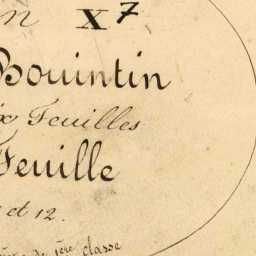 n X 7
Bouintin
ix Feuilles
Feuille
et 12.
de 1ère classe